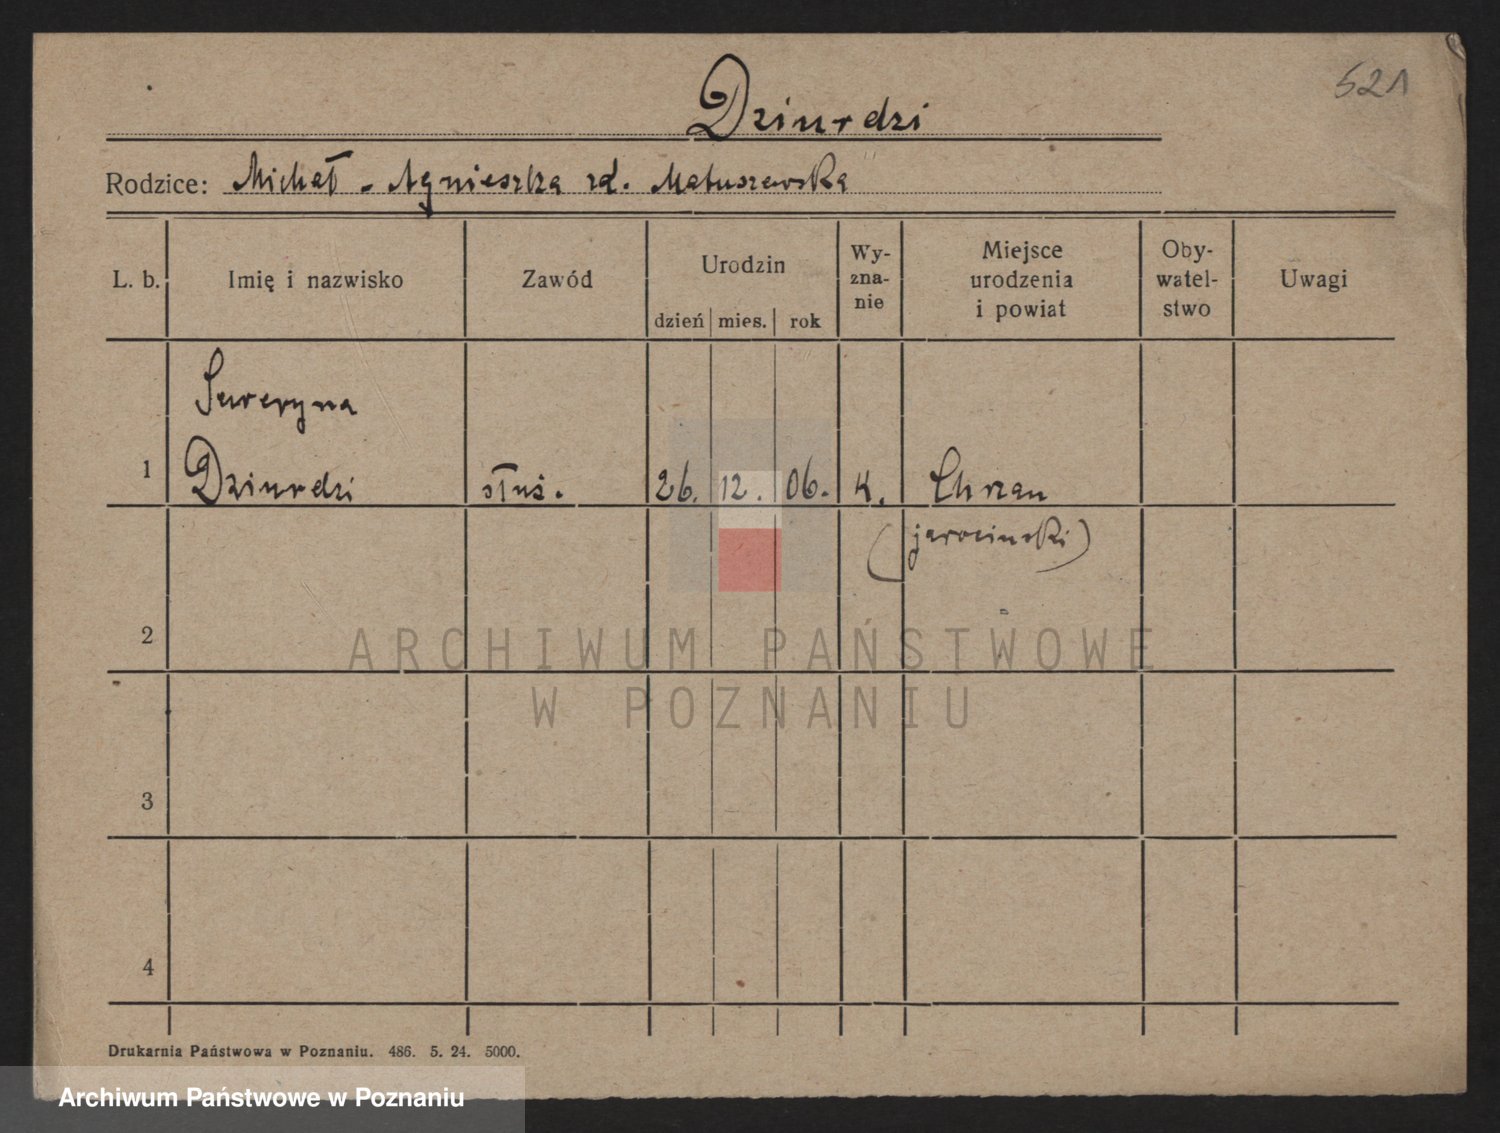 521
Dziurdzi
Rodzice: Michał - Agnieszka zd. Matuszewska
L. b.
Imię i nazwisko
Zawód
Urodzin
dzień
mies.
rok
Wy-
zna-
nie
Miejsce
urodzenia
i powiat
Oby-
watel-
stwo
Uwagi
Seweryna
1 Dziurdzi służ. 26. 12. 06. K. Chrzan
(jarocinski)
2
ARCHIWUM PAŃSTWOWE
W POZNANIU
3
4
Drukarnia Państwowa w Poznaniu. 486. 5. 24. 5000.
Archiwum Państwowe w Poznaniu